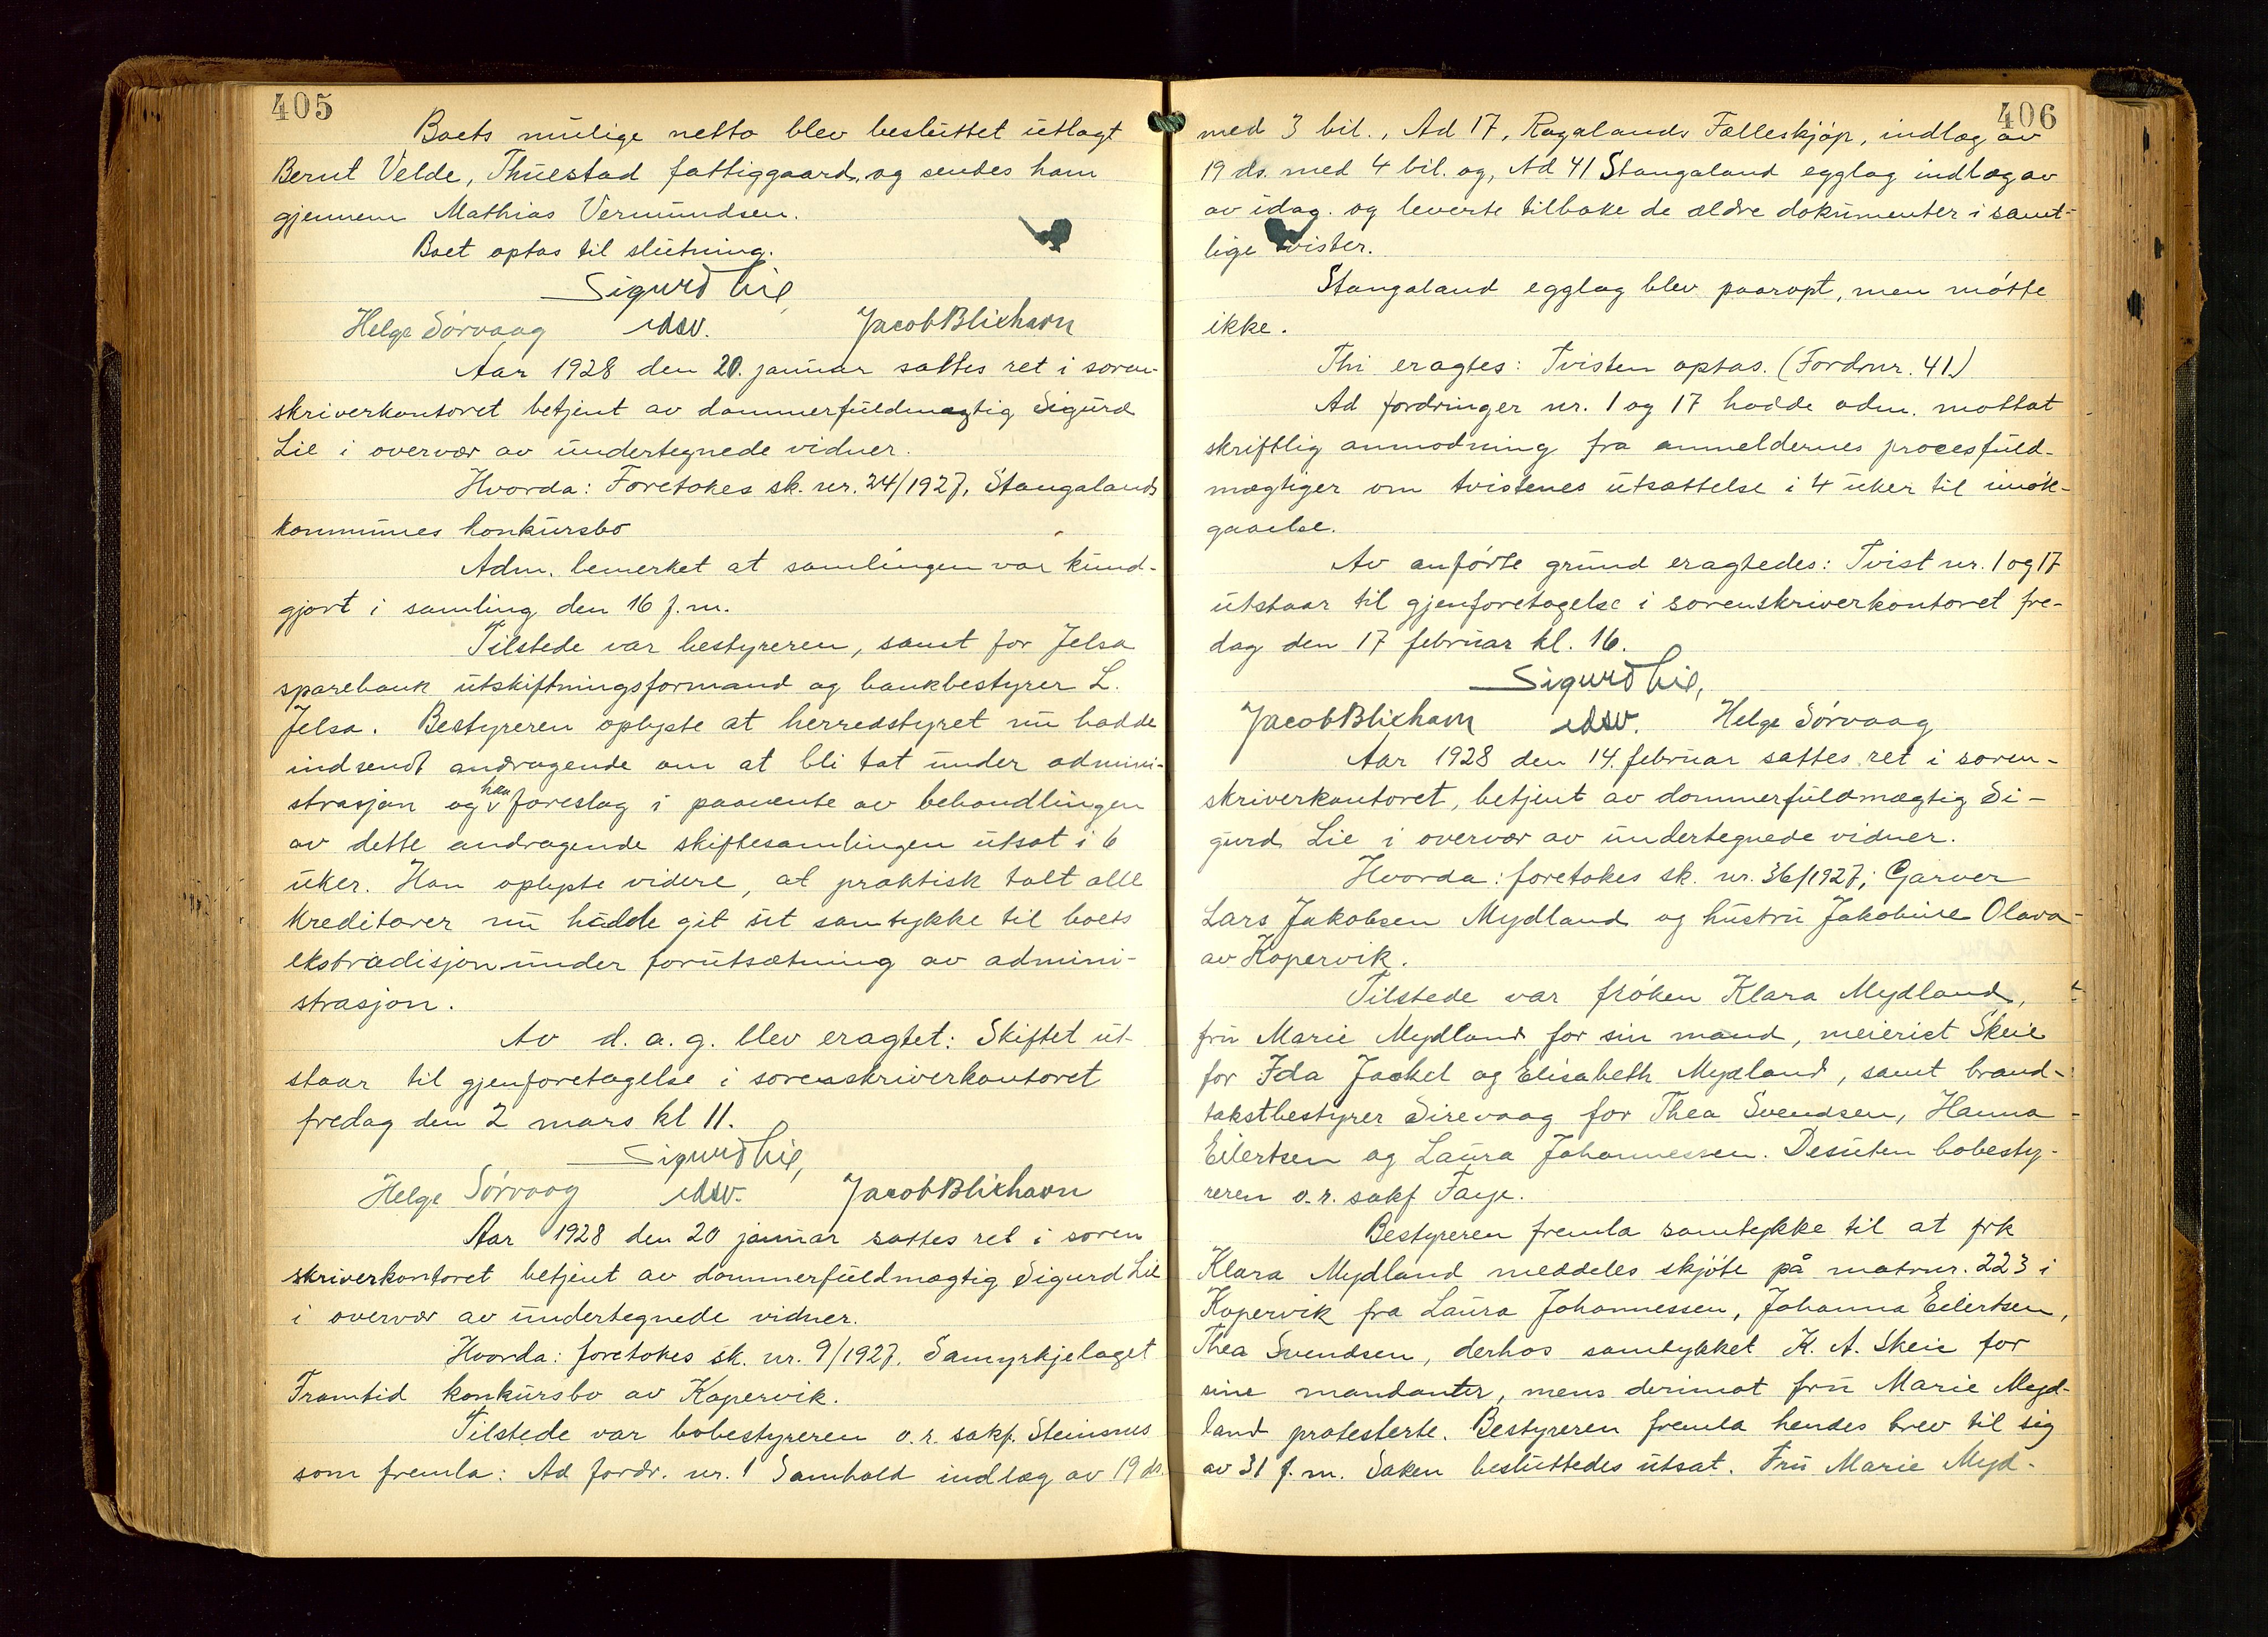 405
Boets mulige netto blev besluttet utlagt
Bernt Velde, Thuestad fattiggaard, og sendes ham
gjennem Mathias Vermundsen.
Boet optas til slutning.
Sigurd Lie,
Helge Sørvaag Jacob Blixhavn
Aar 1928 den 20. januar sattes ret i soren-
skriverkontoret betjent av dommerfuldmægtig Sigurd
Lie i overvær av undertegnede vidner.
Hvorda: Foretokes sk. nr. 24/1927, Stangalands
kommunes konkursbo
Adm. bemerket at samlingen var kund-
gjort i samling den 16 f.m.
Tilstede var bestyreren, samt for Jelsa
sparebank utskiftningsformand og bankbestyrer L.
Jelsa. Bestyreren oplyste at herredstyret nu hadde
indsendt andragende om at bli tat under admini-
strasjon og han foreslog i paavente av behandlingen
av dette andragende skiftesamlingen utsat i 6
uker. Han oplyste videre, at praktisk talt alle
kreditorer nu hadde git sit samtykke til boets
ekstradisjon under forutsætning av admini-
strasjon.
Av d. a. g. blev eragtet: Skiftet ut-
staar til gjenforetagelse i sorenskriverkontoret
fredag den 2 mars kl 11.
Sigurd Lie,
Helge Sørvaag Jacob Blixhavn
Aar 1928 den 20 januar sattes ret i soren
skriverkontoret betjent av dommerfuldmægtig Sigurd Lie
i overvær av undertegnede vidner.
Hvorda: foretokes sk. nr. 9/1927. Samyrkjelaget
Framtid konkursbo av Kopervik.
Tilstede var bobestyreren o.r. sakf. Steinsnes
som fremla: Ad fordr. nr. 1 Samhold indlæg av 19 ds.
406
med 3 bil., Ad 17, Rogalands Fælleskjøp, indlæg av
19 ds. med 4 bil. og, Ad 41 Stangaland egglag indlæg av
av idag. og leverte tilbake de ældre dokumenter i samt-
lige tvister.
Stangaland egglag blev paaropt, men møtte
ikke.
Thi eragtes: Tvisten optas. (Fordrnr. 41.)
Ad fordringer nr. 1 og 17 hadde adm. mottat
skriftlig anmodning fra anmeldernes procesfuld-
mægtiger om tvistenes utsættelse i 4 uker til imøte-
gaaelse.
Av anførte grund eragtedes: Tvist nr. 1 og 17
utstaar til gjenforetagelse i sorenskriverkontoret fre-
dag den 17 februar kl. 16.
Sigurd Lie,
Jacob Blixhavn Helge Sørvaag
Aar 1928 den 14. februar sattes ret i soren-
skriverkontoret, betjent av dommerfuldmægtig Si-
gurd Lie i overvær av undertegnede vidner.
Hvorda: foretokes sk. nr. 36/1927; Garver
Lars Jakobsen Mydland og hustru Jakobine Olava
av Kopervik.
Tilstede var frøken Klara Mydland,
fru Marie Mydland for sin mand, meieriet Skeie
for Ida Jackel og Elisabeth Mydland, samt brand-
takstbestyrer Sirevaag for Thea Svendsen, Hanna
Eilertsen og Laura Johannessen. Desuten bobesty-
reren o.r. sakf Faye.
Bestyreren fremla samtykke til at frk
Klara Mydland meddeles skjøte på matrnr. 223 i
Kopervik fra Laura Johannessen, Johanna Eilertsen,
Thea Svendsen, derhos samtykket K. A. Skeie for
sine mandanter, mens derimot fru Marie Myd-
land protesterte. Bestyreren fremla hendes brev til sig
av 31 f.m. Saken besluttedes utsat. Fru Marie Myd-